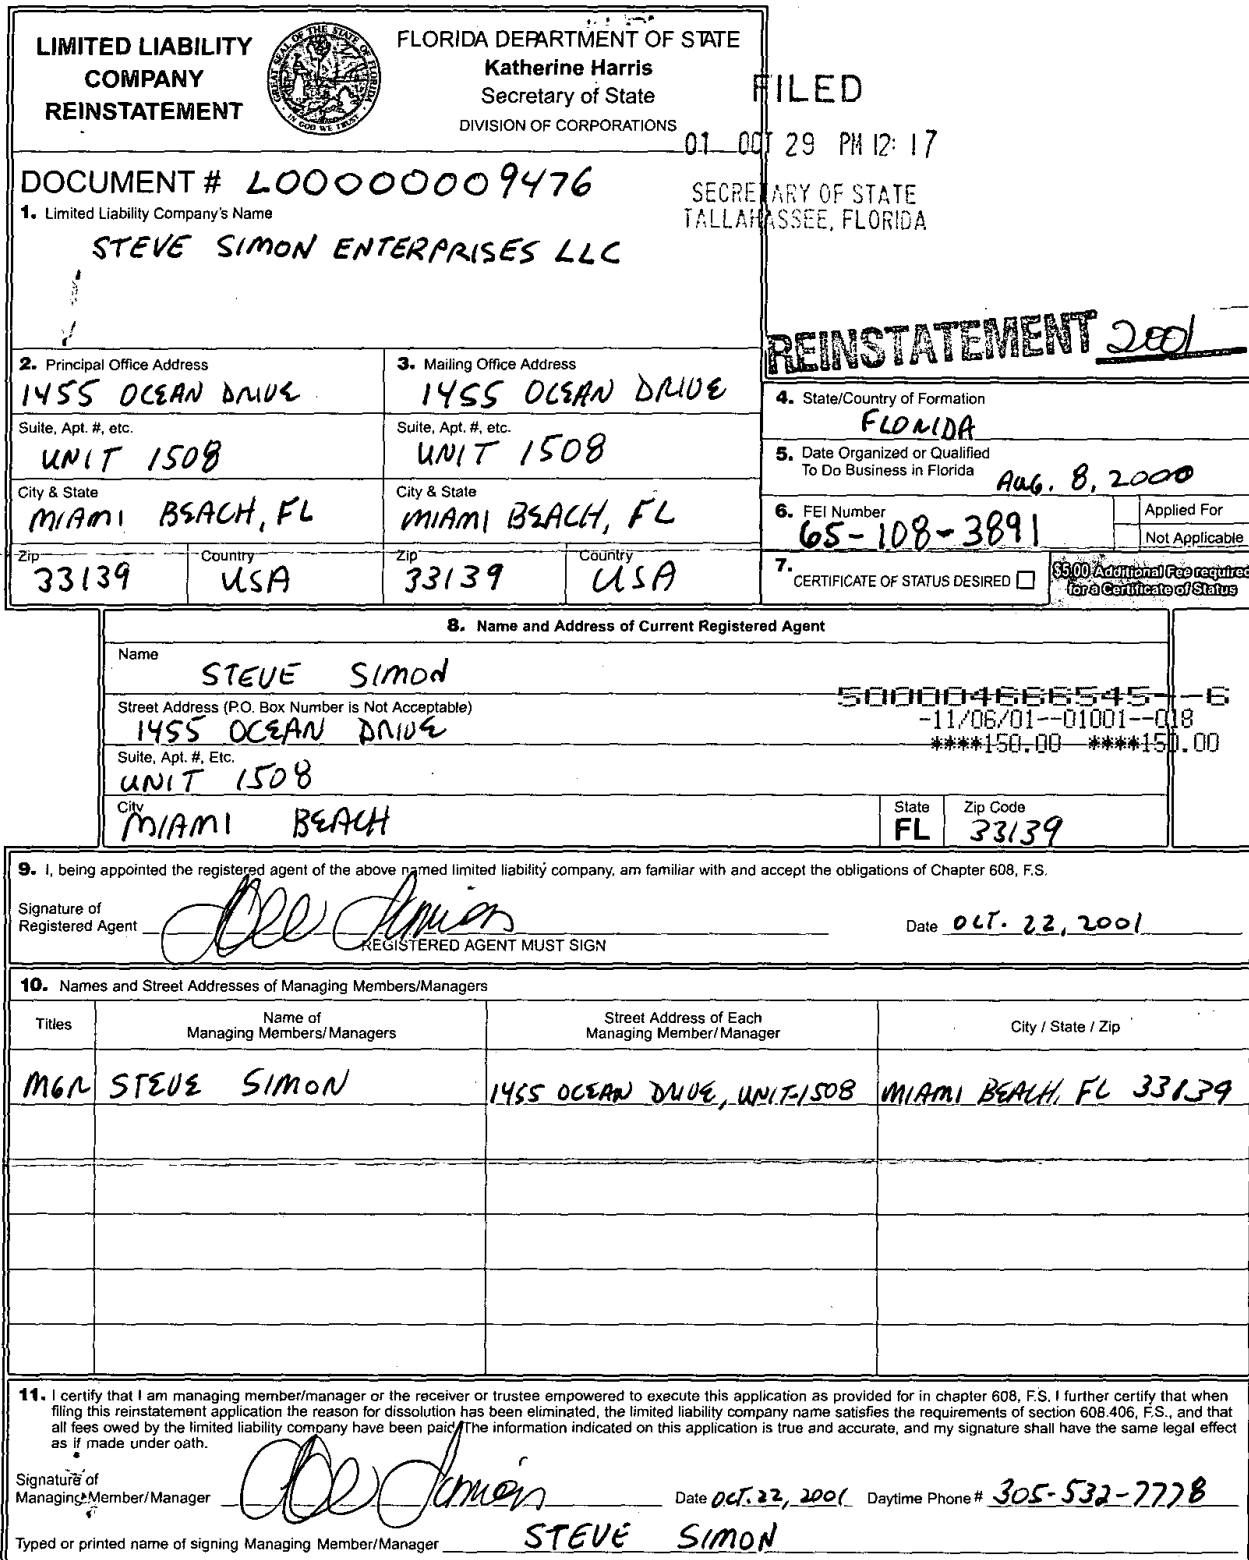 LIMITED LIABILITY
COMPANY
REINSTATEMENT
GREAT SEAL OF THE STATE OF FLORIDA
IN GOD WE TRUST
FLORIDA DEPARTMENT OF STATE
Katherine Harris
Secretary of State
DIVISION OF CORPORATIONS
FILED
01 OCT 29 PM 12:17
SECRETARY OF STATE
TALLAHASSEE, FLORIDA
DOCUMENT # L00000009476
1. Limited Liability Company's Name
STEVE SIMON ENTERPRISES LLC
REINSTATEMENT 2001
2. Principal Office Address
1455 OCEAN DRIVE
Suite, Apt. #, etc.
UNIT 1508
City & State
MIAMI BEACH, FL
Zip
33139
Country
USA
3. Mailing Office Address
1455 OCEAN DRIVE
Suite, Apt. #, etc.
UNIT 1508
City & State
MIAMI BEACH, FL
Zip
33139
Country
USA
4. State/Country of Formation
FLORIDA
5. Date Organized or Qualified
To Do Business in Florida
AUG. 8, 2000
6. FEI Number
65-108-3891
Applied For
Not Applicable
7. CERTIFICATE OF STATUS DESIRED
$5.00 Additional Fee required
for a Certificate of Status
8. Name and Address of Current Registered Agent
Name
STEVE SIMON
Street Address (P.O. Box Number is Not Acceptable)
1455 OCEAN DRIVE
Suite, Apt. #, Etc.
UNIT 1508
City
MIAMI BEACH
State
FL
Zip Code
33139
500004666545--6
-11/06/01--01001--018
****150.00 ****150.00
9. I, being appointed the registered agent of the above named limited liability company, am familiar with and accept the obligations of Chapter 608, F.S.
Signature of
Registered Agent
REGISTERED AGENT MUST SIGN
Date OCT. 22, 2001
10. Names and Street Addresses of Managing Members/Managers
Titles
Name of
Managing Members/Managers
Street Address of Each
Managing Member/Manager
City / State / Zip
MGR STEVE SIMON 1455 OCEAN DRIVE, UNIT-1508 MIAMI BEACH, FL 33139
11. I certify that I am managing member/manager or the receiver or trustee empowered to execute this application as provided for in chapter 608, F.S. I further certify that when
filing this reinstatement application the reason for dissolution has been eliminated, the limited liability company name satisfies the requirements of section 608.406, F.S., and that
all fees owed by the limited liability company have been paid. The information indicated on this application is true and accurate, and my signature shall have the same legal effect
as if made under oath.
Signature of
Managing Member/Manager
Date OCT. 22, 2001 Daytime Phone # 305-532-7778
Typed or printed name of signing Managing Member/Manager STEVE SIMON